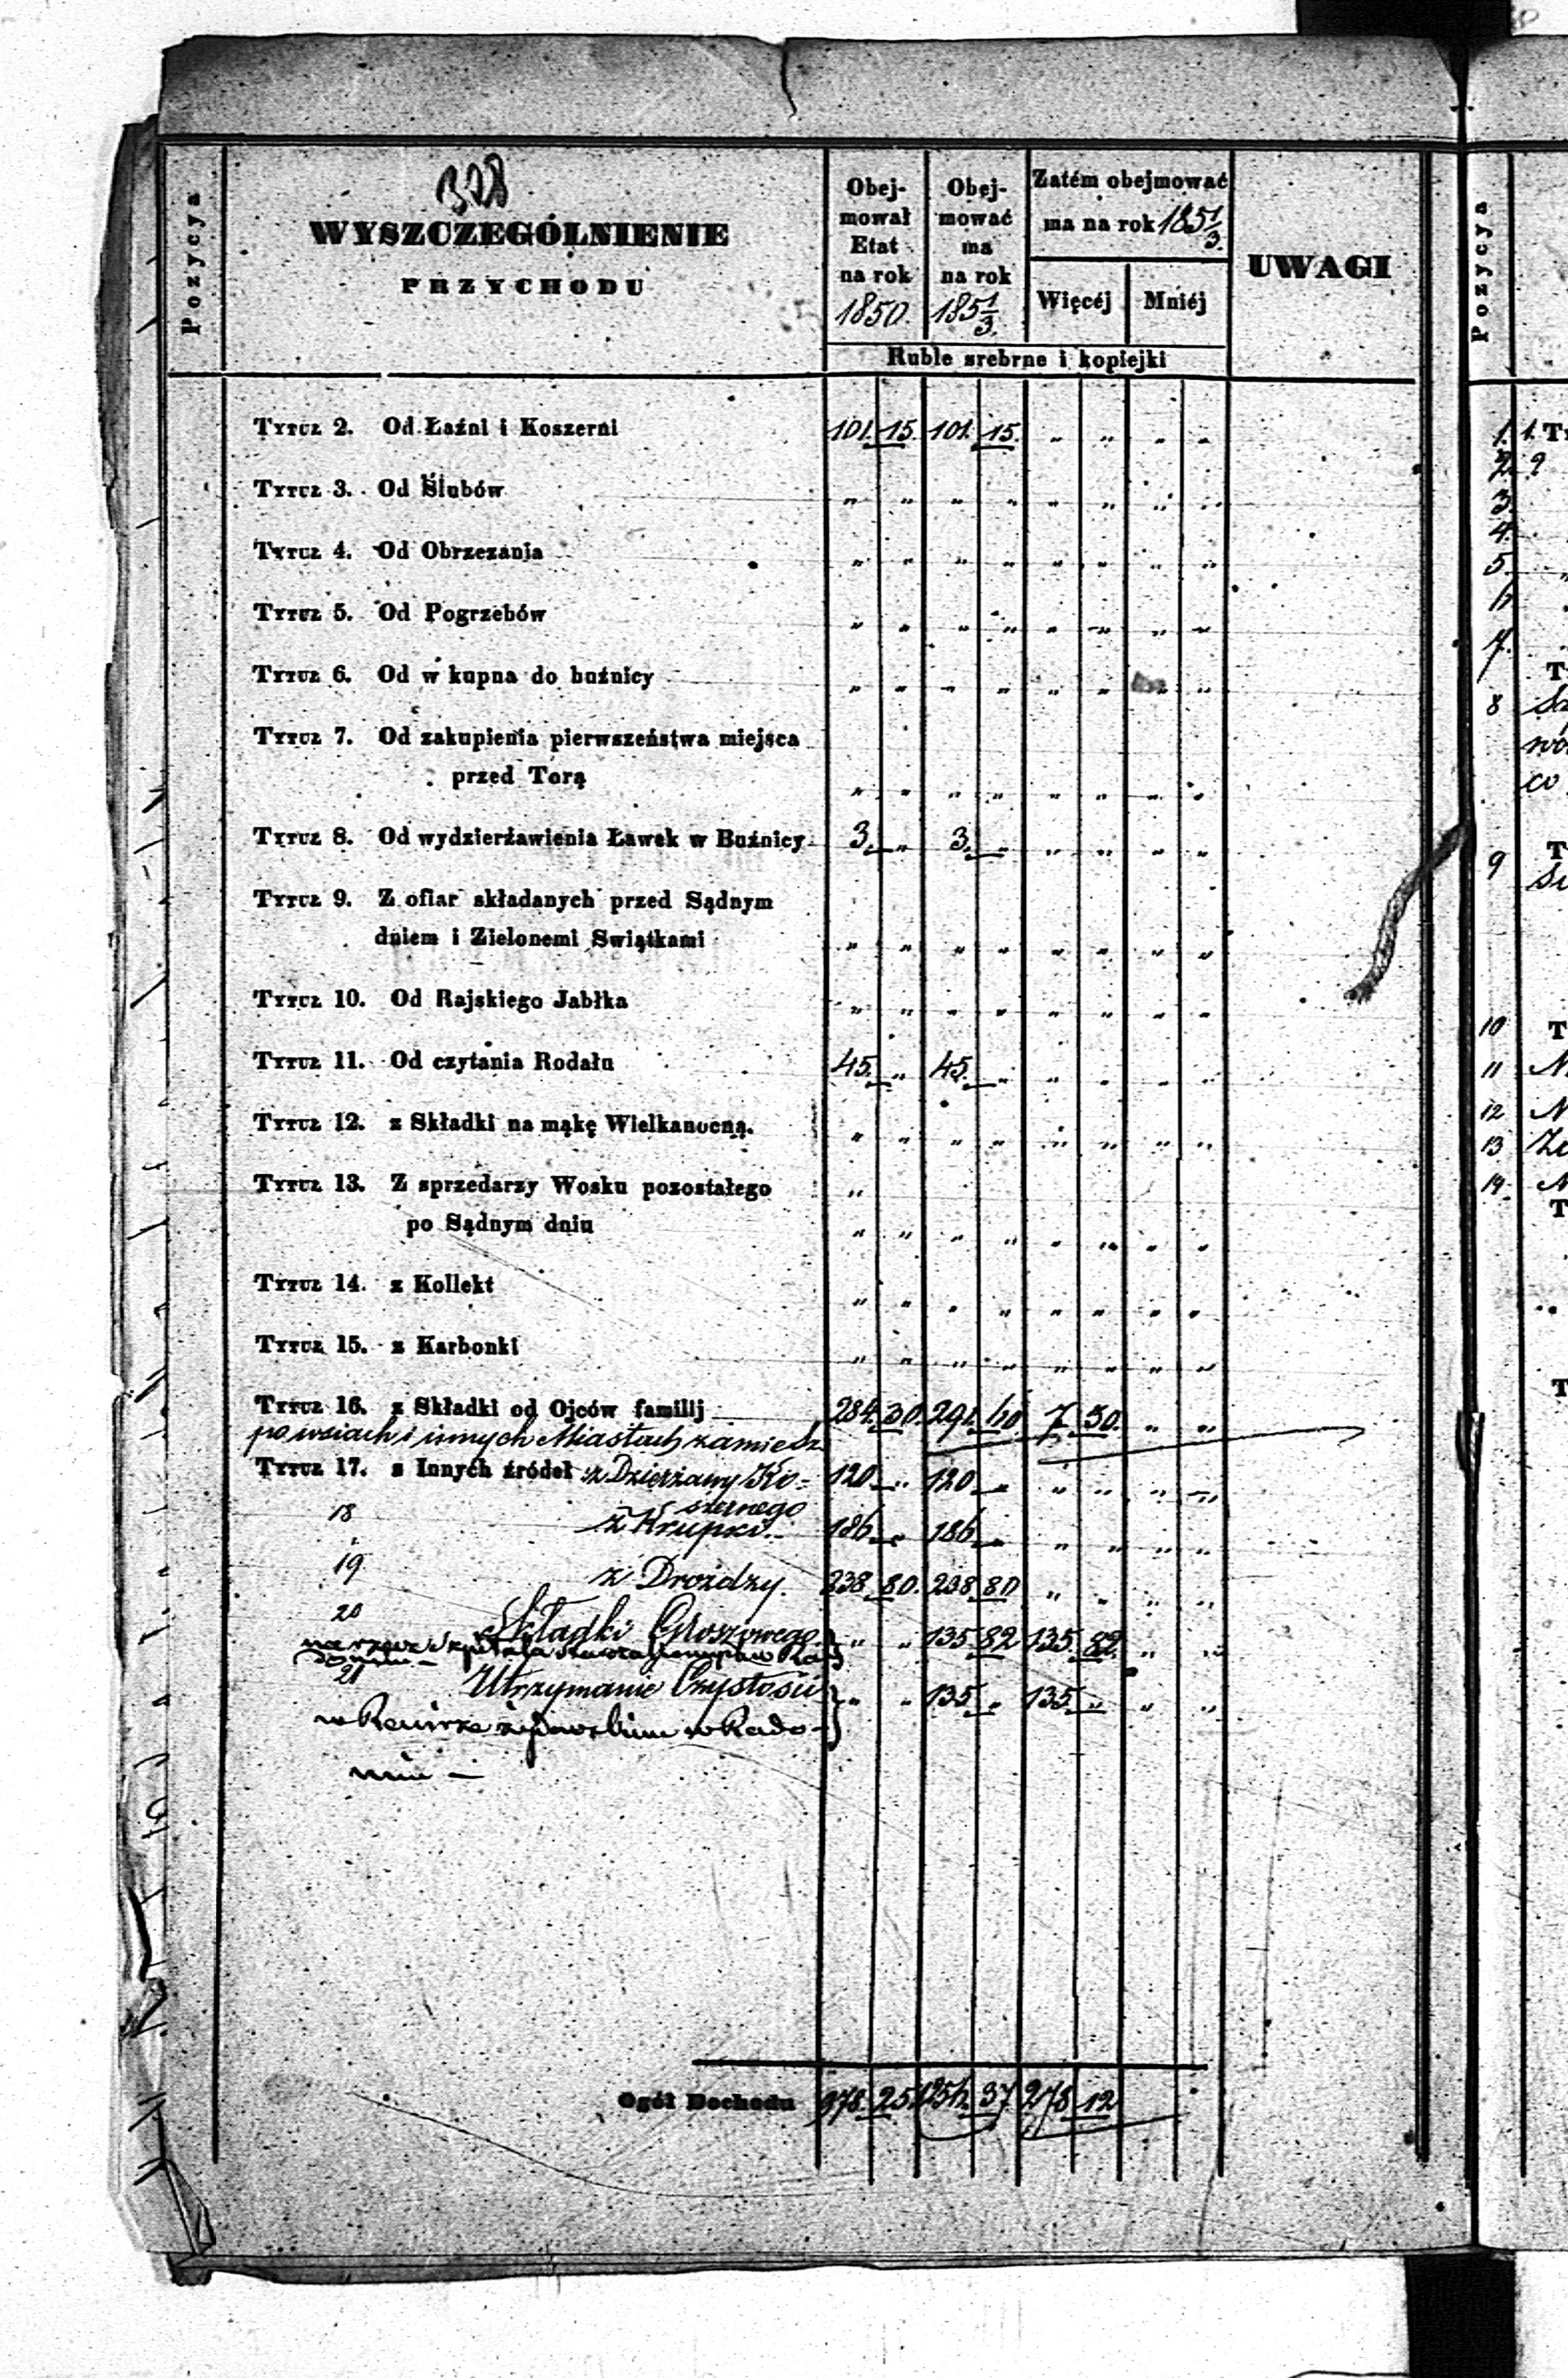 328
Pozycya
WYSZCZEGÓLNIENIE
PRZYCHODU
Obej-
mował
Etat
na rok
1850.
Obej-
mować
ma
na rok
185 1/3.
Zatém obejmować
ma na rok 185 1/3.
Więcéj
Mniéj
Ruble srebrne i kopiejki
UWAGI
Pozycya
Tytuł 2. Od Łaźni i Koszerni 101. 15. 101. 15. „ „ „ „
Tytuł 3. Od Slubów „ „ „ „ „ „ „ „
Tytuł 4. Od Obrzezania „ „ „ „ „ „ „ „
Tytuł 5. Od Pogrzebów „ „ „ „ „ „ „ „
Tytuł 6. Od w kupna do buźnicy „ „ „ „ „ „ „ „
Tytuł 7. Od zakupienia pierwszeństwa miejsca
przed Torą „ „ „ „ „ „ „ „
Tytuł 8. Od wydzierżawienia Ławek w Buźnicy 3. „ 3. „ „ „ „ „
Tytuł 9. Z ofiar składanych przed Sądnym
dniem i Zielonemi Swiątkami „ „ „ „ „ „ „ „
Tytuł 10. Od Rajskiego Jabłka „ „ „ „ „ „ „ „
Tytuł 11. Od czytania Rodału 45. „ 45. „ „ „ „ „
Tytuł 12. z Składki na mąkę Wielkanocną. „ „ „ „ „ „ „ „
Tytuł 13. Z sprzedarzy Wosku pozostałego „
po Sądnym dniu „ „ „ „ „ „ „ „
Tytuł 14. z Kollekt „ „ „ „ „ „ „ „
Tytuł 15. z Karbonki „ „ „ „ „ „ „ „
Tytuł 16. z Składki od Ojców familij 284. 30. 291. 60 7. 30. „ „
po wsiach i innych Miastach zamiesz.
Tytuł 17. z Innych źródeł z Dzierżawy Ko- 120 „ 120 „ „ „ „ „
szernego
18 z Krupki 186 „ 186 „ „ „ „ „
19 z Drożdzy. 238 80. 238 80 „ „ „ „
20 Składki Groszowego „ „ 135 82 135. 82. „ „
na rzecz Szpitala
21 Utrzymanie Czystości „ „ 135 „ 135 „ „ „
w Rewirze żydowskim w Rado-
miu —
Ogół Dochodu 978 25 1256. 37. 278 12
1. 1. T
2. 2
3.
4.
5.
6
7.
T
8
co
T
9
10 T
11 N
12 N
13
14 N
T
T